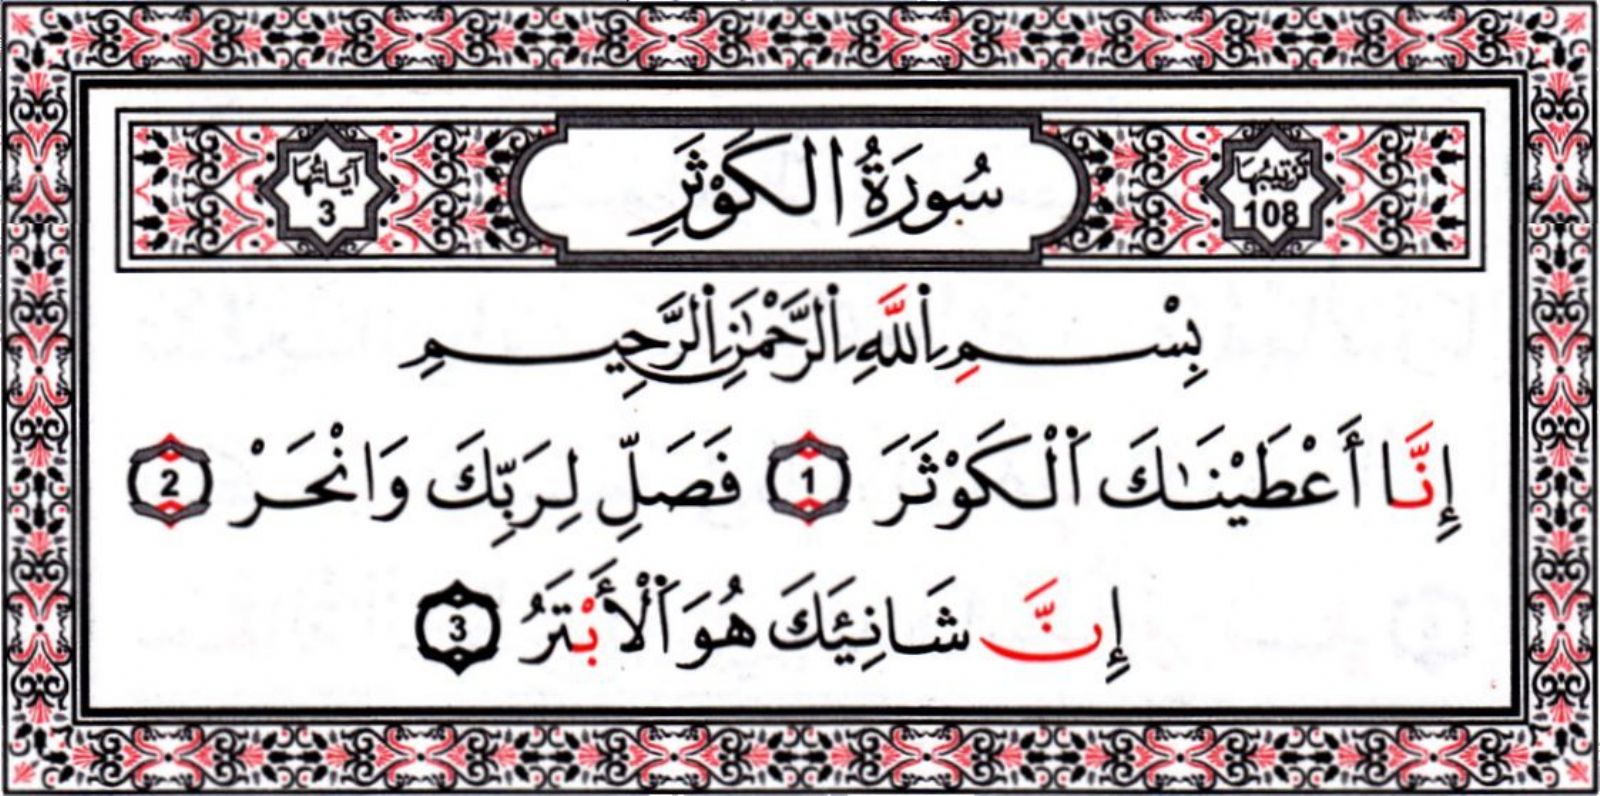 ترتيبها 108
سُورَةُ الكَوْثَرِ
آياتُها 3
بِسْمِ اللَّهِ الرَّحْمَٰنِ الرَّحِيمِ
إِنَّا أَعْطَيْنَٰكَ ٱلْكَوْثَرَ 1 فَصَلِّ لِرَبِّكَ وَانْحَرْ 2
إِنَّ شَانِئَكَ هُوَ ٱلْأَبْتَرُ 3